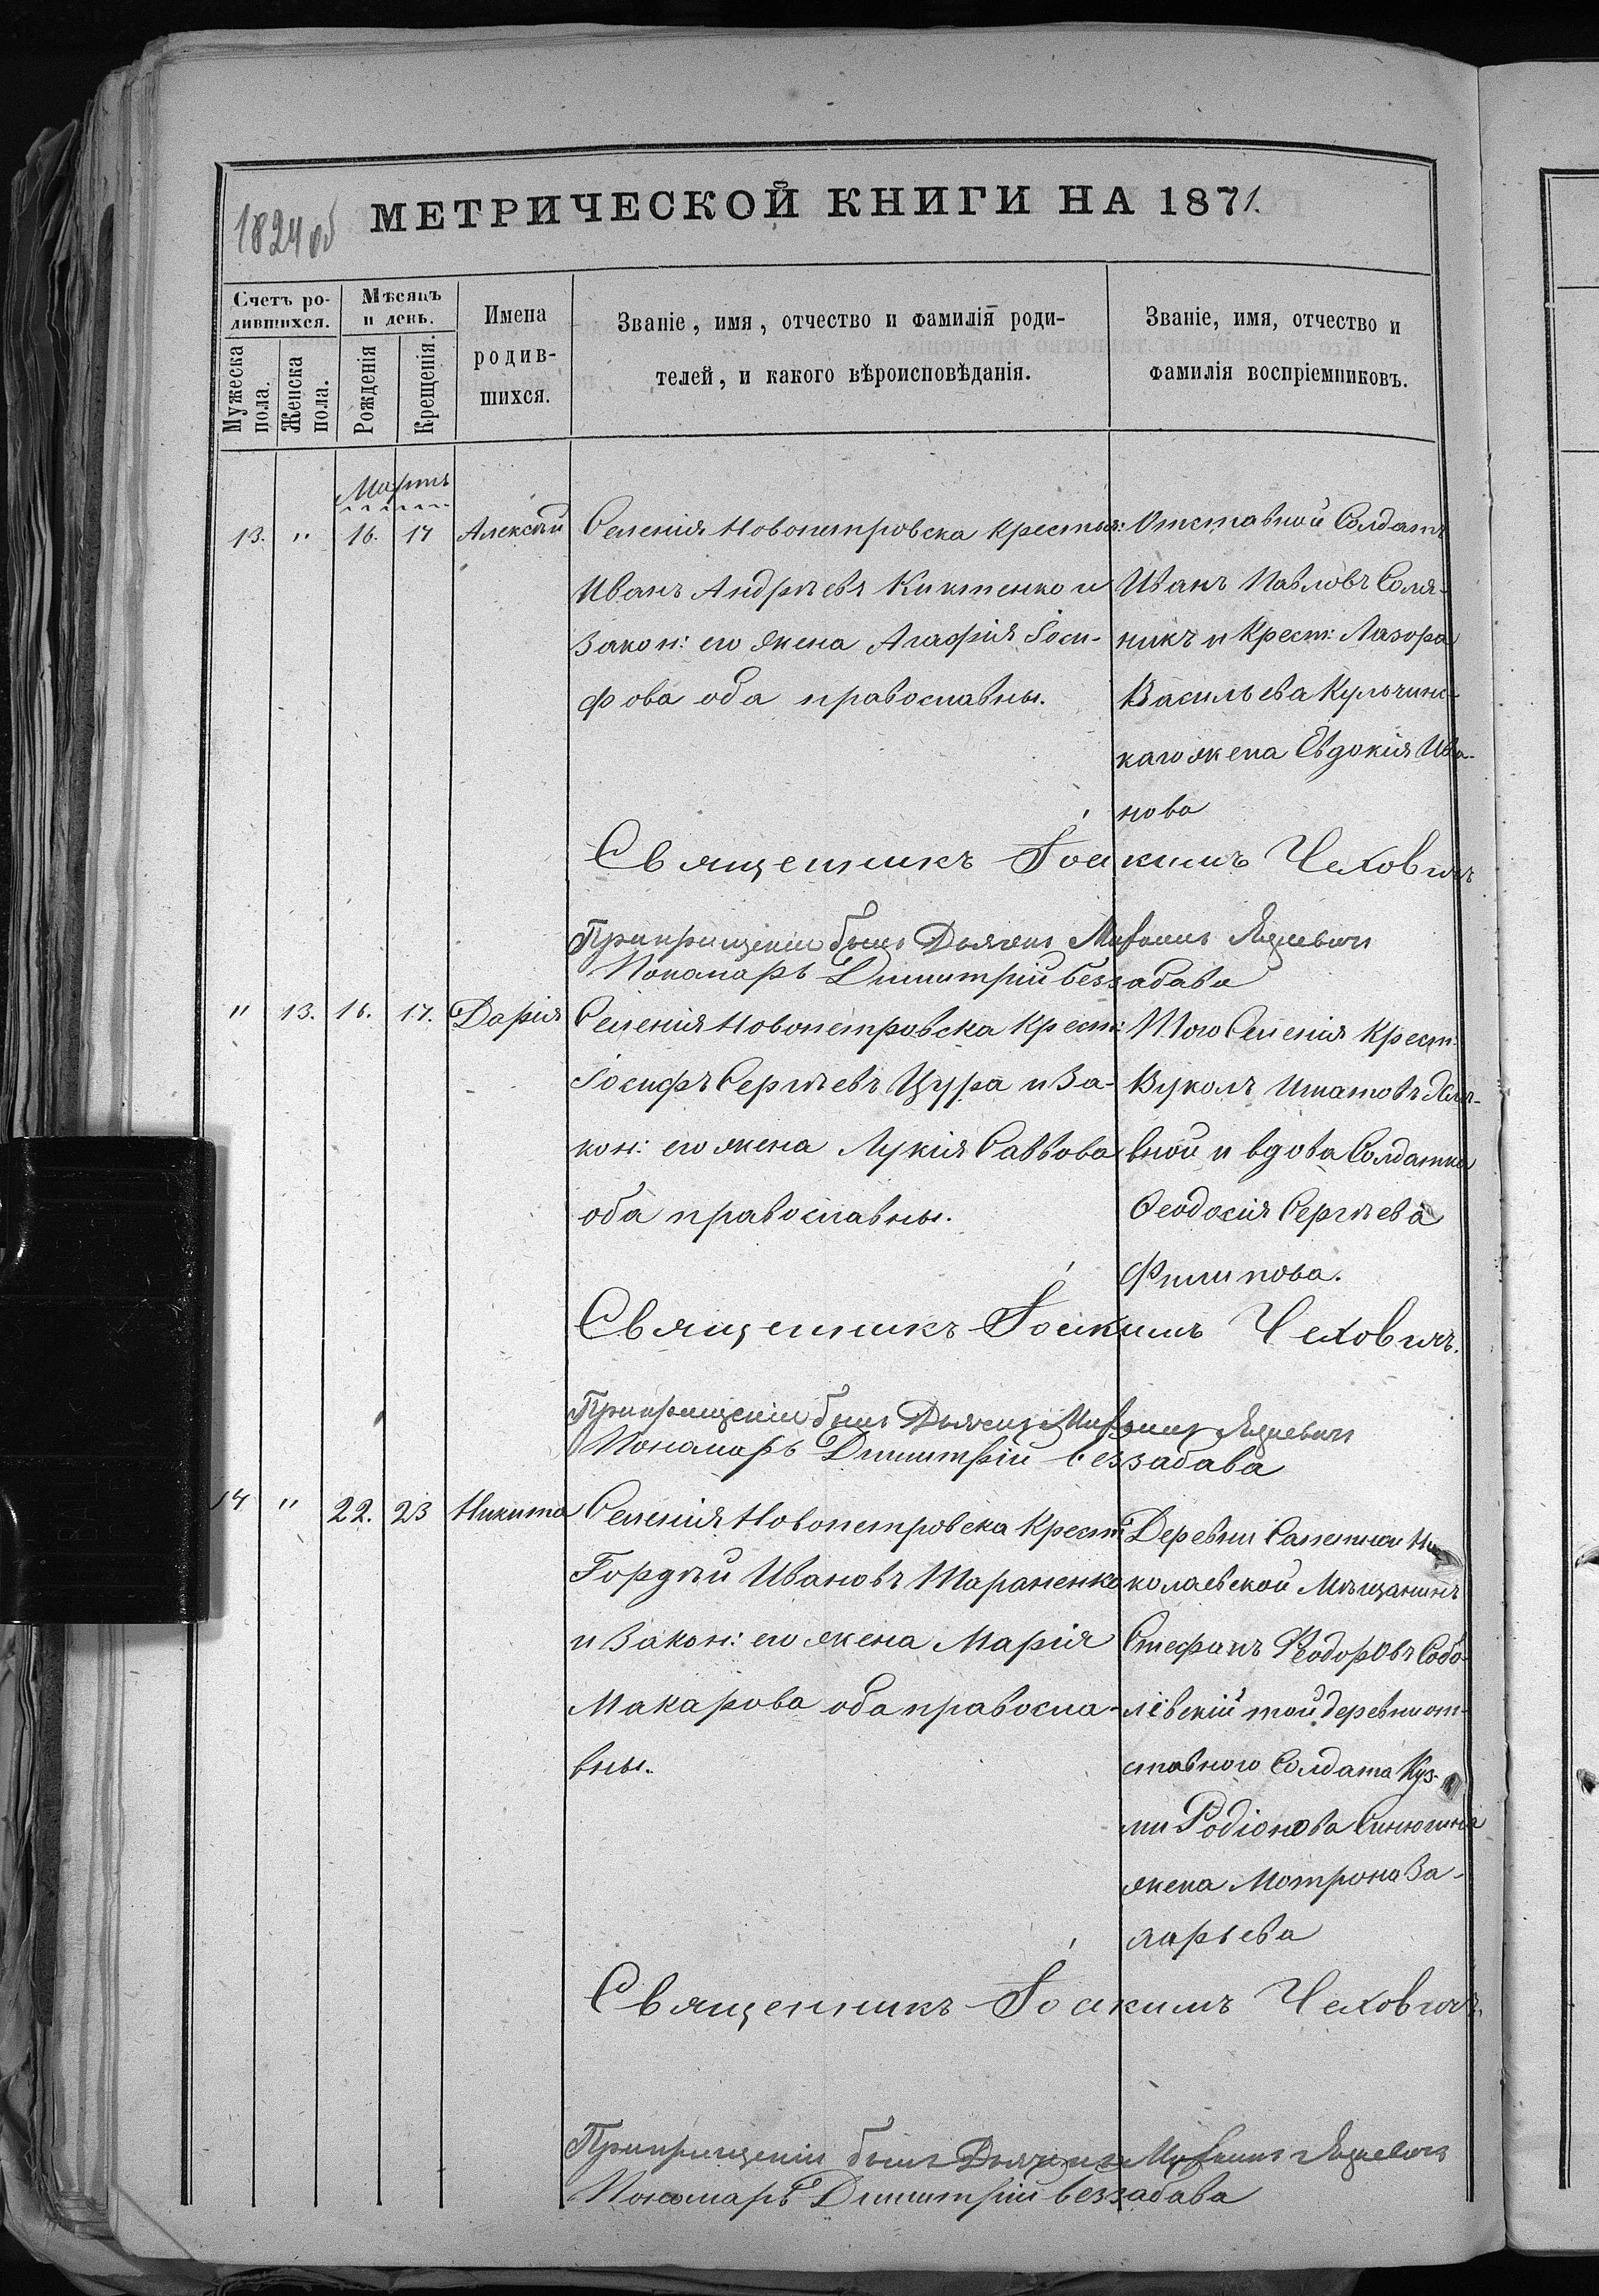 1824 об
МЕТРИЧЕСКОЙ КНИГИ НА 1871.
Счетъ ро-
дившихся.
Мужеска пола.
Женска пола.
Мѣсяцъ
и день.
Рожденія
Крещенія.
Имена
родив-
шихся.
Званіе, имя, отчество и фамилія роди-
телей, и какого вѣроисповѣданія.
Званіе, имя, отчество и
фамилія воспріемниковъ.
Мартъ
13. " 16. 17 Алексѣй
Селенія Новопетровска крестья:
Иванъ Андрѣевъ Киктенко и
Закон: его жена Агафія Іоси-
фова оба православны.
Отставной Солдатъ
Иванъ Павловъ Соля-
никъ и Крест: Лазора
Васильева Кульчинс-
каго жена Евдокія Ива-
нова
Священникъ Іоакимъ Чехович
При крещеніи былъ Дьячекъ
Пономарь Димитрій Беззабава
" 13. 16. 17. Дарія
Селенія Новопетровска Крест:
Іосифъ Сергѣевъ Цура и За-
кон: его жена Лукія Саввова
оба православны.
Того Селенія Крест:
Вуколъ Игнатовъ
вной и вдова Солдатка
Феодосія Сергѣева
Филипова.
Священникъ Іоакимъ Чеховичъ.
При крещеніи былъ Дьячекъ
Пономарь Димитрій Беззабава
14 " 22. 23 Никита
Селенія Новопетровска Крест:
Гордѣй Ивановъ Тараненко
и Закон: его жена Марія
Макарова оба правосла-
вны.
Деревни Ни-
колаевской Мѣщанинъ
Стефанъ Феодоровъ Собо-
левскій той деревни от-
ставного Солдата Куз-
ми Родіонова Синюгина
жена Мотрона За-
харьева
Священникъ Іоакимъ Чеховичъ.
При крещеніи былъ Дьячекъ
Пономарь Димитрій Беззабава